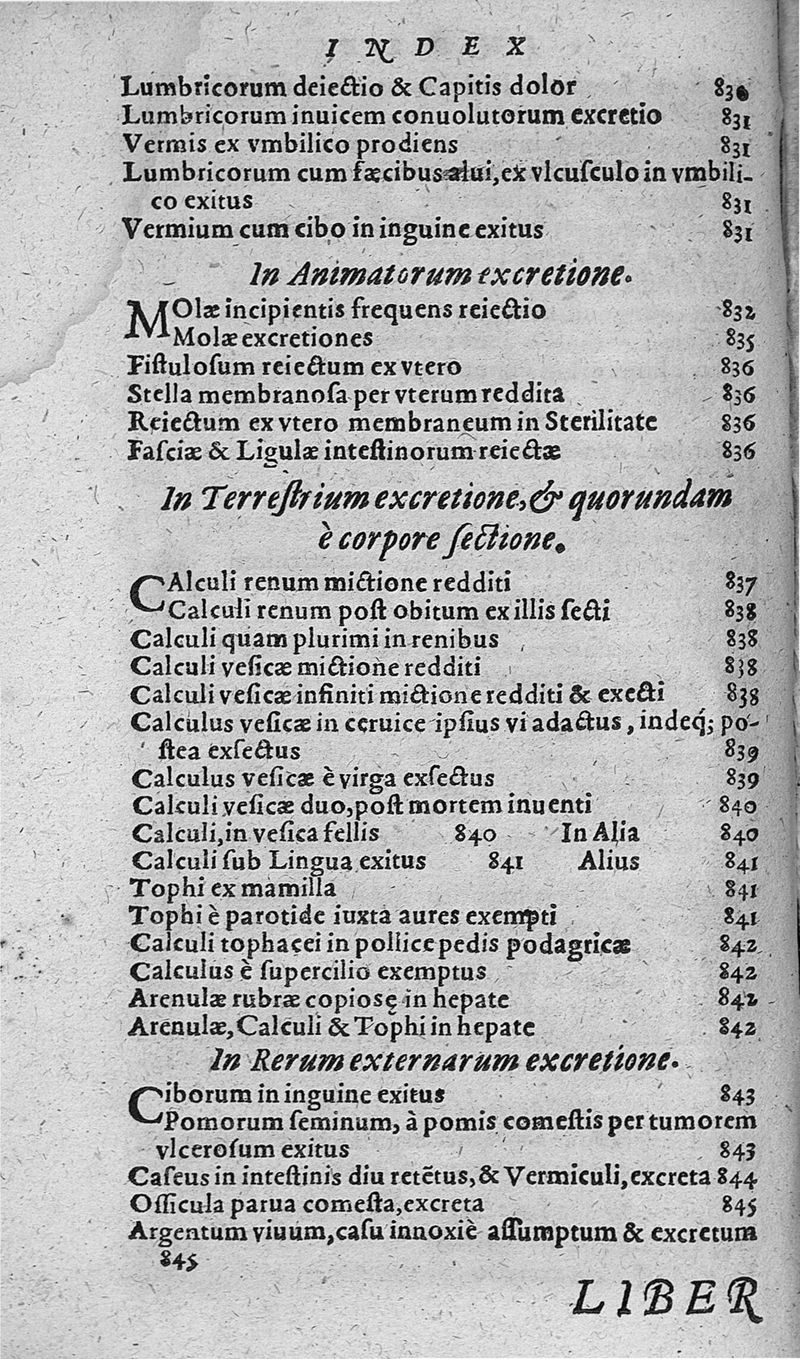 INDEX
Lumbricorum deiectio & Capitis dolor 830
Lumbricorum inuicem conuolutorum excretio 831
Vermis ex vmbilico prodiens 831
Lumbricorum cum fæcibus alui, ex vlcuſculo in vmbili-
co exitus 831
Vermium cum cibo in inguine exitus 831
In Animatorum excretione.
MOlæ incipientis frequens reiectio 832
Molæ excretiones 835
Fiſtuloſum reiectum ex vtero 836
Stella membranoſa per vterum reddita 836
Reiectum ex vtero membraneum in Sterilitate 836
Faſciæ & Ligulæ inteſtinorum reiectæ 836
In Terreſtrium excretione, & quorundam
è corpore ſectione.
CAlculi renum mictione redditi 837
Calculi renum poſt obitum ex illis ſecti 838
Calculi quam plurimi in renibus 838
Calculi veſicæ mictione redditi 838
Calculi veſicæ infiniti mictione redditi & execti 838
Calculus veſicæ in ceruice ipſius vi adactus, indeq́; po-
ſtea exſectus 839
Calculus veſicæ è virga exſectus 839
Calculi veſicæ duo, poſt mortem inuenti 840
Calculi, in veſica fellis 840 In Alia 840
Calculi ſub Lingua exitus 841 Alius 841
Tophi ex mamilla 841
Tophi è parotide iuxta aures exempti 841
Calculi tophacei in pollice pedis podagricæ 842
Calculus è ſupercilio exemptus 842
Arenulæ rubræ copioſę in hepate 842
Arenulæ, Calculi & Tophi in hepate 842
In Rerum externarum excretione.
Ciborum in inguine exitus 843
Pomorum ſeminum, à pomis comeſtis per tumorem
vlceroſum exitus 843
Caſeus in inteſtinis diu retẽtus, & Vermiculi, excreta 844
Oſſicula parua comeſta, excreta 845
Argentum viuum, caſu innoxiè aſſumptum & excretum
845
LIBER